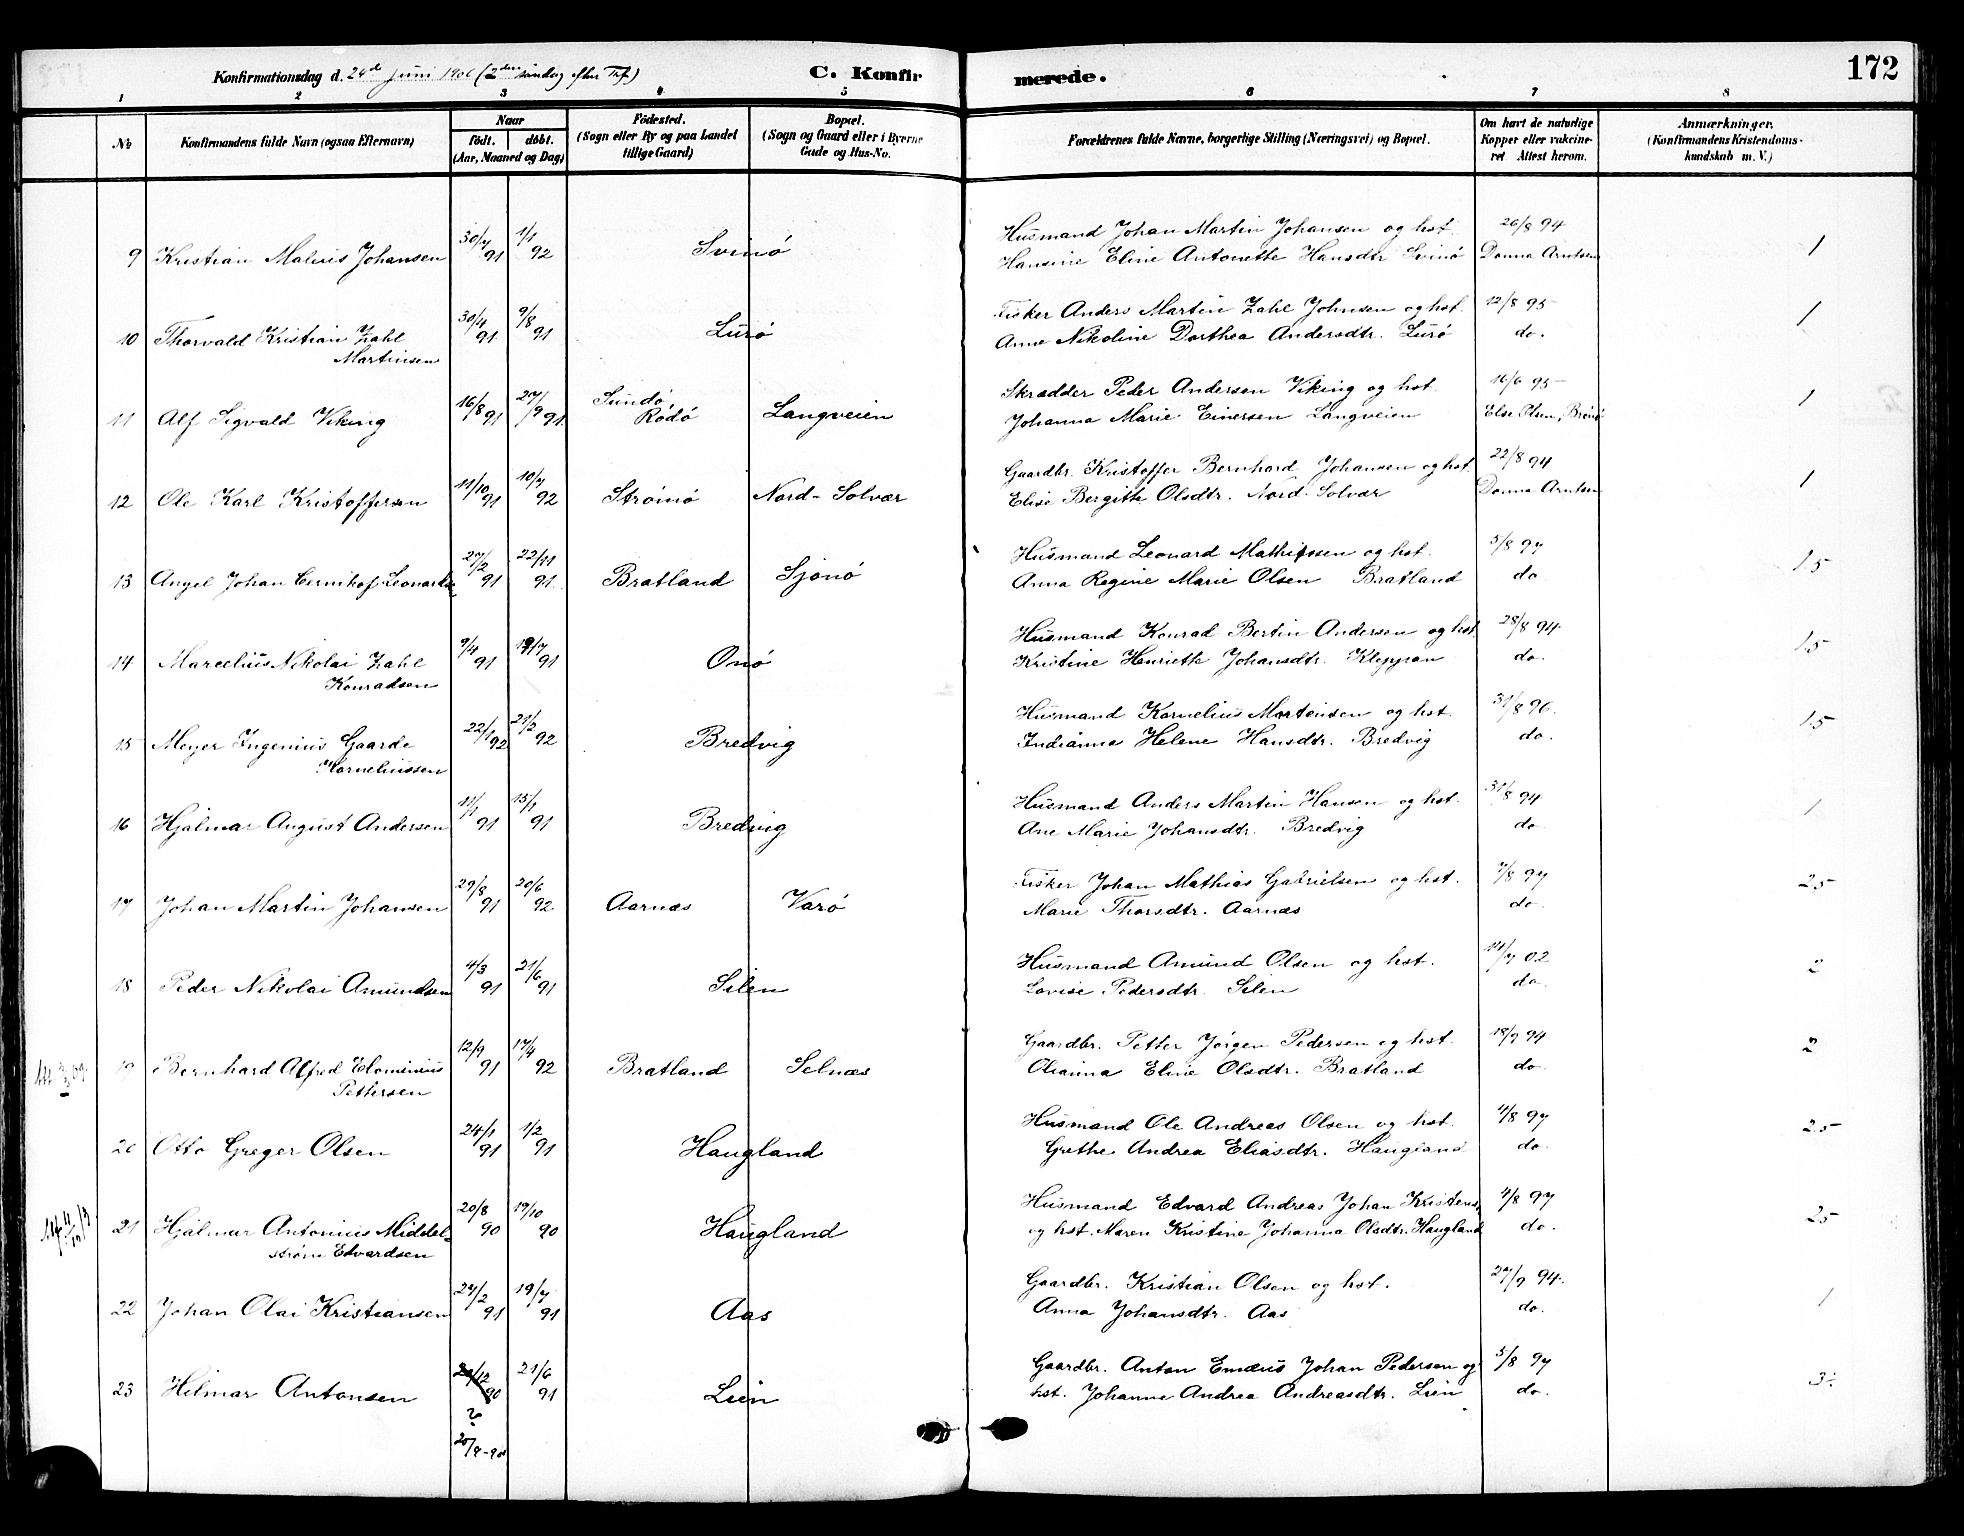 172
Konfirmationsdag d. 24de juni 1906 (2den søndag efter Tref.)
C. Konfirmerede.
1 2 3 4 5 6 7 8
No
Konfirmandens fulde Navn (ogsaa Efternavn)
Naar
födt. döbt.
(Aar, Maaned og Dag)
Födested.
(Sogn eller By og paa Landet
tillige Gaard)
Bopæl.
(Sogn og Gaard eller i Byerne
Gade og Hus-No.
Forældrenes fulde Navne, borgerlige Stilling (Næringsvei) og Bopæl.
Om havt de naturlige
Kopper eller vakcine-
ret Attest herom.
Anmærkninger.
(Konfirmandens Kristendoms-
kundskab m. V.)
9 Kristian Malvis Johansen 30/7 91 1/1 92 Svinö
Husmand Johan Martin Johansen og hst. 26/8 94
Hansine Eline Antonette Hansdtr Svinö Donna Arntsen 1
10 Thorvald Kristian Zahl 30/4 91 9/8 91 Lurö
Martinsen
Fisker Anders Martin Zahl Johnsen og hst. 12/8 95
Anne Nikoline Dorthea Andersdtr. Lurö do. 1
11 Alf Sigvald Viking 16/8 91 27/9 91. Sundö, Rödö Langveien
Skrædder Peder Andersen Viking og hst. 16/6 95
Johanna Marie Einersen Langveien Else Olsen, Brönö 1
12 Ole Karl Kristoffersen 11/10 91 10/7 92 Strömö Nord-Solvær
Gaardbr. Kristoffer Bernhard Johansen og hst. 22/8 94
Elise Bergitte Olsdtr. Nord-Solvær Donna Arntsen 1
13 Angel Johan 27/2 91 22/11 91. Bratland Sjönö
Husmand Leonard Mathissen og hst. 5/8 97
Anna Regine Marie Olsen Bratland do 1.5
14 Marcelius Nikolai Zahl 9/4 91 19/7 91 Onö
Konradsen
Husmand Konrad Bertin Andersen og hst. 28/8 94.
Kristine Henriette Johansdtr. Kleppan do. 1.5
15 Meyer Ingenius Gaarde 22/1 92 21/2 92 Bredvig
Korneliussen
Husmand Kornelius Mortensen og hst. 31/8 96.
Indianna Helene Hansdtr. Bredvig do. 1.5
16 Hjalmar August Andersen 11/1 91 15/1 91 Bredvig
Husmand Anders Martin Hansen og hst. 31/8 94
Ane Marie Johansdtr. Bredvig do 1
17 Johan Martin Johansen 29/8 91 20/6 92. Aarnæs Varö
Fisker Johan Mathias Gabrielsen og hst. 7/8 97
Marie Thorsdtr. Aarnæs do. 2.5
18 Peder Nikolai Amundsen 4/3 91 21/6 91 Silen
Husmand Amund Olsen og hst. 14/7 02
Lovise Pedersdtr. Selen do. 2
19 Bernhard Alfred Elominius 12/9 91 17/4 92 Bratland Selnæs
Pettersen
Gaardbr. Petter Jörgen Pedersen og hst. 18/9 94
Olianna Eline Olsdtr. Bratland do. 2
20 Otto Greger Olsen 24/1 91 1/2 91 Haugland
Husmand Ole Andreas Olsen og hst. 4/8 97
Grethe Andrea Eliasdtr. Haugland do. 2.5
21 Hjalmar Antonius Middel- 20/8 90 19/10 90 Haugland
ström Edvardsen
Husmand Edvard Andreas Johan Kristens. 4/8 97
og hst. Maren Kristine Johanna Olsdtr. Haugland do. 2.5
22 Johan Olai Kristiansen 27/2 91 19/7 91 Aas
Gaardbr. Kristian Olsen og hst. 27/9 94.
Anna Johansdtr. Aas do. 1
23 Hilmar Antonsen 90 21/6 91 Lien
Gaardbr. Anton Emæus Johan Pedersen og 5/8 97
hst. Johanne Andrea Andreasdtr. Lien do. 3